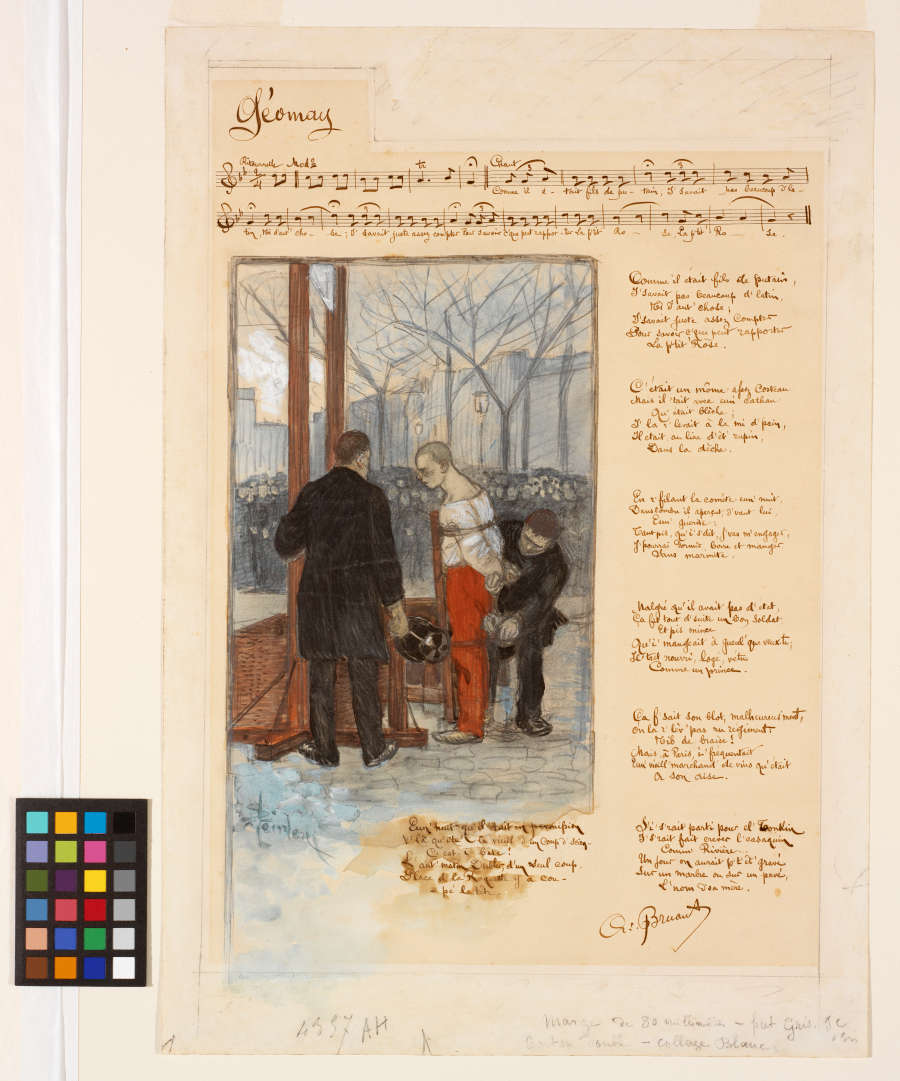 Géomay
Ritournelle Modto
tr
Chant
Comme il é - tait fils de pu - tain, I' savait pas beaucoup d'la -
tin, Ni d'aut' cho - se; I' savait juste assez compter Pour savoir c'que peut rappor - ter La p'tit' Ro - se La p'tit' Ro - se.
Comme il était fils de putain,
I' savait pas beaucoup d'latin,
Ni d'aut' chose;
I' savait juste assez compter
Pour savoir c'que peut rapporter
La p'tit' Rose.
C'était un môme assez costeau
Mais il 'tait avec eun'
Qu' était blèche;
I' la r'levait à la mi d'pain,
Il était au lieu d'êt' rupin,
Dans la dèche.
En r'filant la comète eun' nuit,
Dans l'ombre il aperçut, d'vant lui,
Eun' guérite:
Tant pis, qu'i' s'dit, j'vas m'engager,
J'pourrai dormir, boire et manger
Dans marmite.
Malgré qu'il avait pas d'état,
Ça fit tout d'suite un bon soldat
Et pis mince
Qu'i' mangeait à gueul' que veux-tu,
Il 'tait nourri, logé, vêtu
Comme un prince.
Ça f'sait son blot, malheureus'ment,
on la r'lèv' pas au régiment.
Nib de braise!
Mais à Paris, i' fréquentait
Eun' vieill' marchand' de vins qu'était
A son aise.
Eun' nuit qu'il était en permission
V'là qu'i' la vieill' d'un coup d'
C'est-i' bête!
L'aut' matin d'un seul coup,
Place d' la Roquette y a cou -
pé la têt'.
S'i' s'rait parti pour el' Tonkin
I' s'rait fait crever l'casaquin
Comm' Rivière...
Un jour on aurait p't êt' gravé
Sur un marbre ou sur un pavé,
L'nom d'sa mère.
Ar. Bruant
Steinlen
4337 AH
Marge de 80 millimètres - put Gris.
Carton - collage Blanc